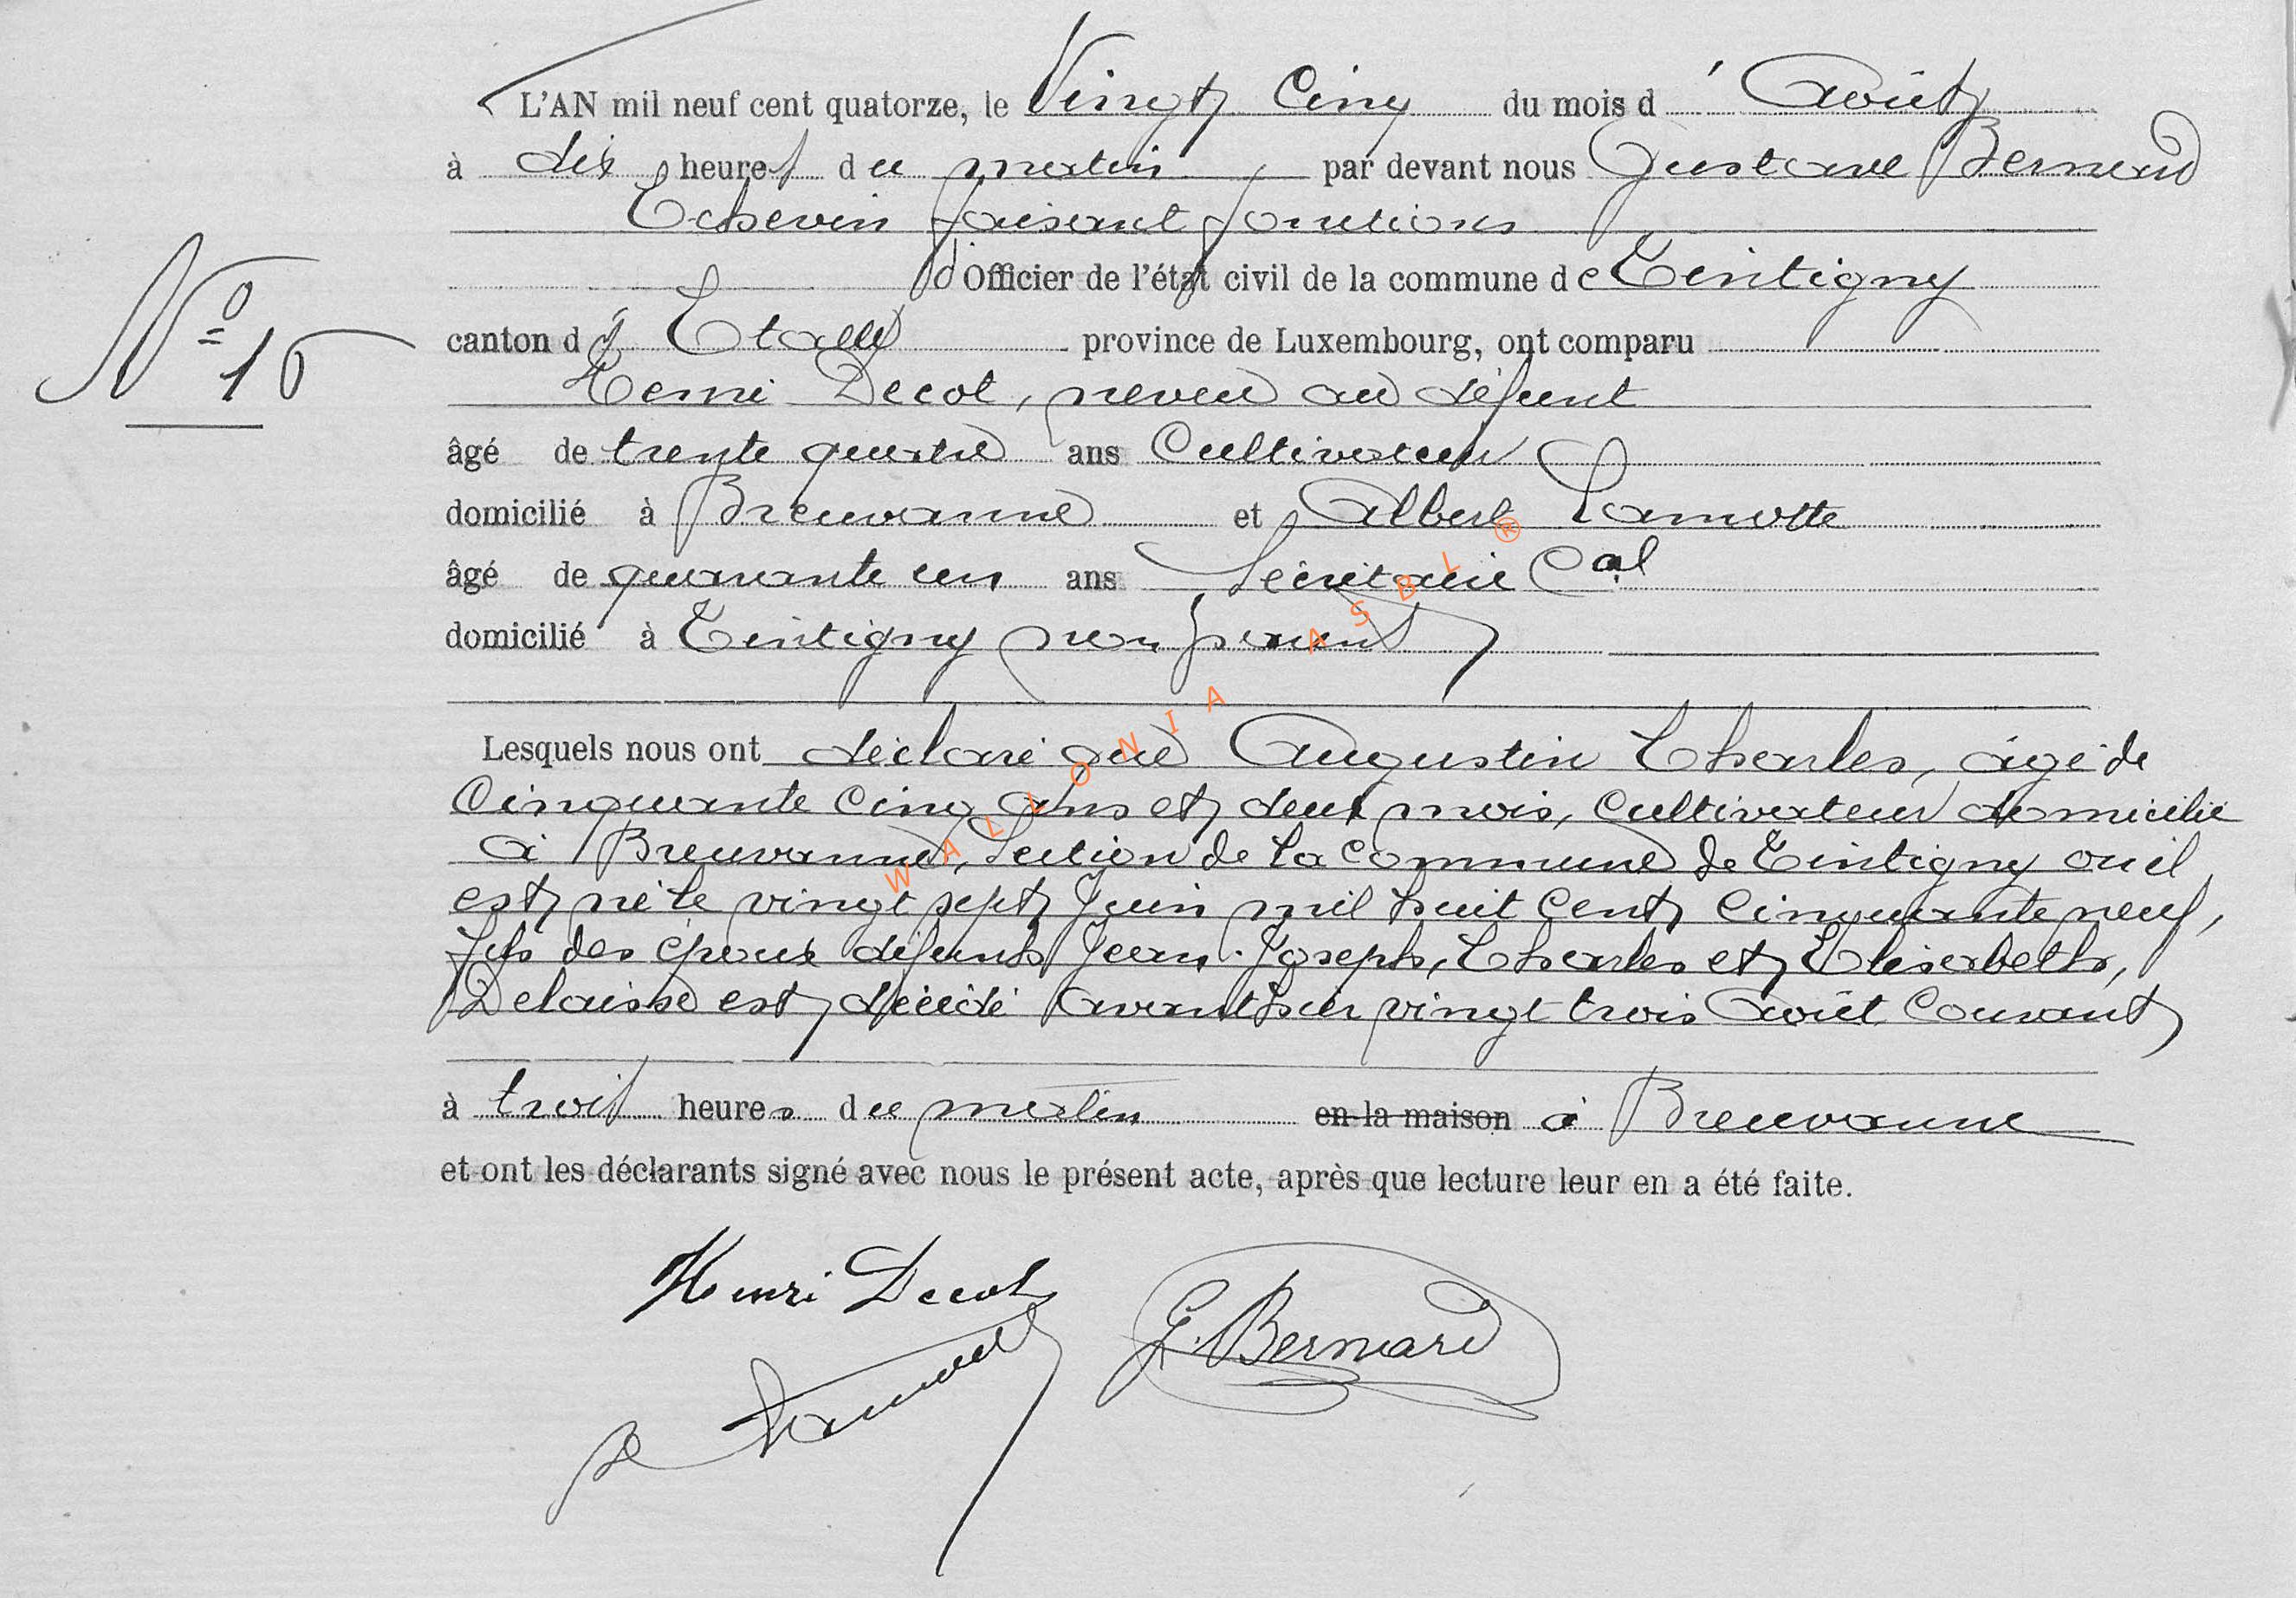 L'AN mil neuf cent quatorze, le Vingt Cinq du mois d' Août
à dix heures du matin par devant nous Gustave Bernard
Echevin faisant fonctions
d'Officier de l'état civil de la commune de Tintigny
canton d' Etalle province de Luxembourg, ont comparu
Henri Decot, neveu au défunt
âgé de trente quatre ans Cultivateur
domicilié à Breuvanne et Albert Lamotte
âgé de quarante un ans Secrétaire Cal
domicilié à Tintigny non parent
Lesquels nous ont déclaré que Augustin Charles, âgé de
Cinquante Cinq ans et deux mois, Cultivateur domicilié
à Breuvanne, Section de la Commune de Tintigny où il
est né le vingt sept Juin mil huit Cent Cinquante neuf,
fils des époux défunts Jean-Joseph, Charles et Elisabeth,
Delaisse est décédé avant hier vingt trois Août Courant
à trois heures du matin en la maison à Breuvanne
et ont les déclarants signé avec nous le présent acte, après que lecture leur en a été faite.
N° 16
Henri Decot
G. Bernard
WALLONIA ASBL ®